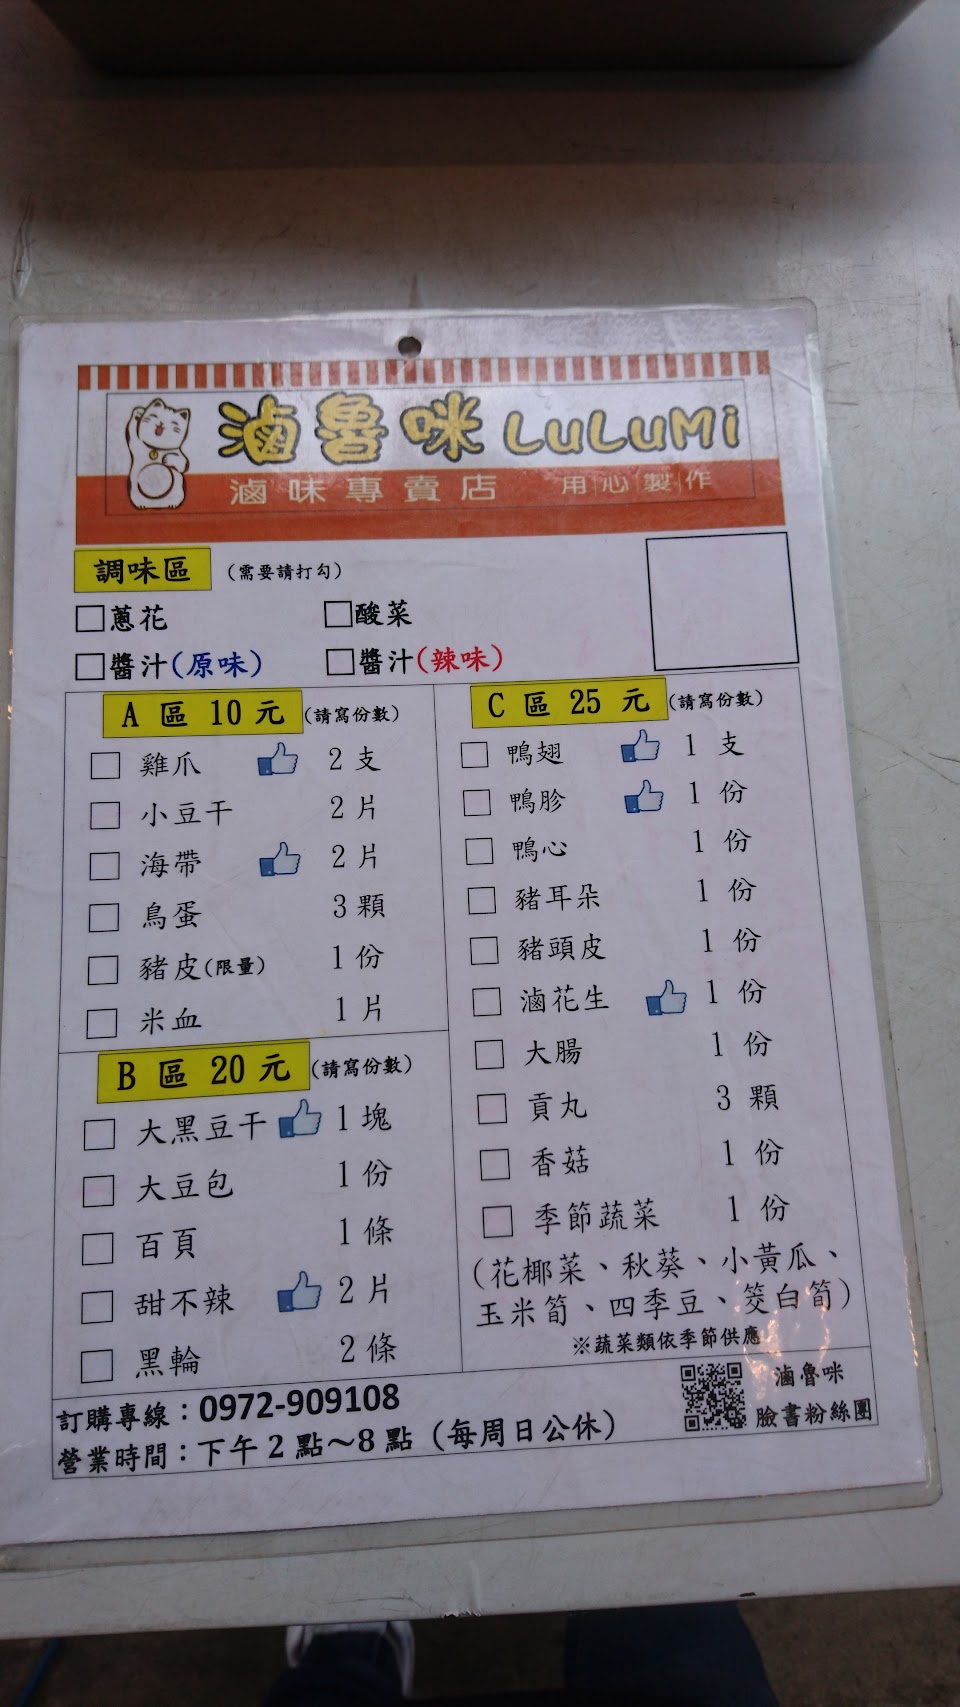 滷魯咪 LuLuMi
滷味專賣店 用心製作
調味區 (需要請打勾)
□蔥花 □酸菜
□醬汁(原味) □醬汁(辣味)
A 區 10 元 (請寫份數)
□ 雞爪 2 支
□ 小豆干 2 片
□ 海帶 2 片
□ 鳥蛋 3 顆
□ 豬皮(限量) 1 份
□ 米血 1 片
B 區 20 元 (請寫份數)
□ 大黑豆干 1 塊
□ 大豆包 1 份
□ 百頁 1 條
□ 甜不辣 2 片
□ 黑輪 2 條
C 區 25 元 (請寫份數)
□ 鴨翅 1 支
□ 鴨胗 1 份
□ 鴨心 1 份
□ 豬耳朵 1 份
□ 豬頭皮 1 份
□ 滷花生 1 份
□ 大腸 1 份
□ 貢丸 3 顆
□ 香菇 1 份
□ 季節蔬菜 1 份
(花椰菜、秋葵、小黃瓜、
玉米筍、四季豆、筊白筍)
※蔬菜類依季節供應
訂購專線：0972-909108
營業時間：下午 2 點～8 點 (每周日公休)
滷魯咪
臉書粉絲團